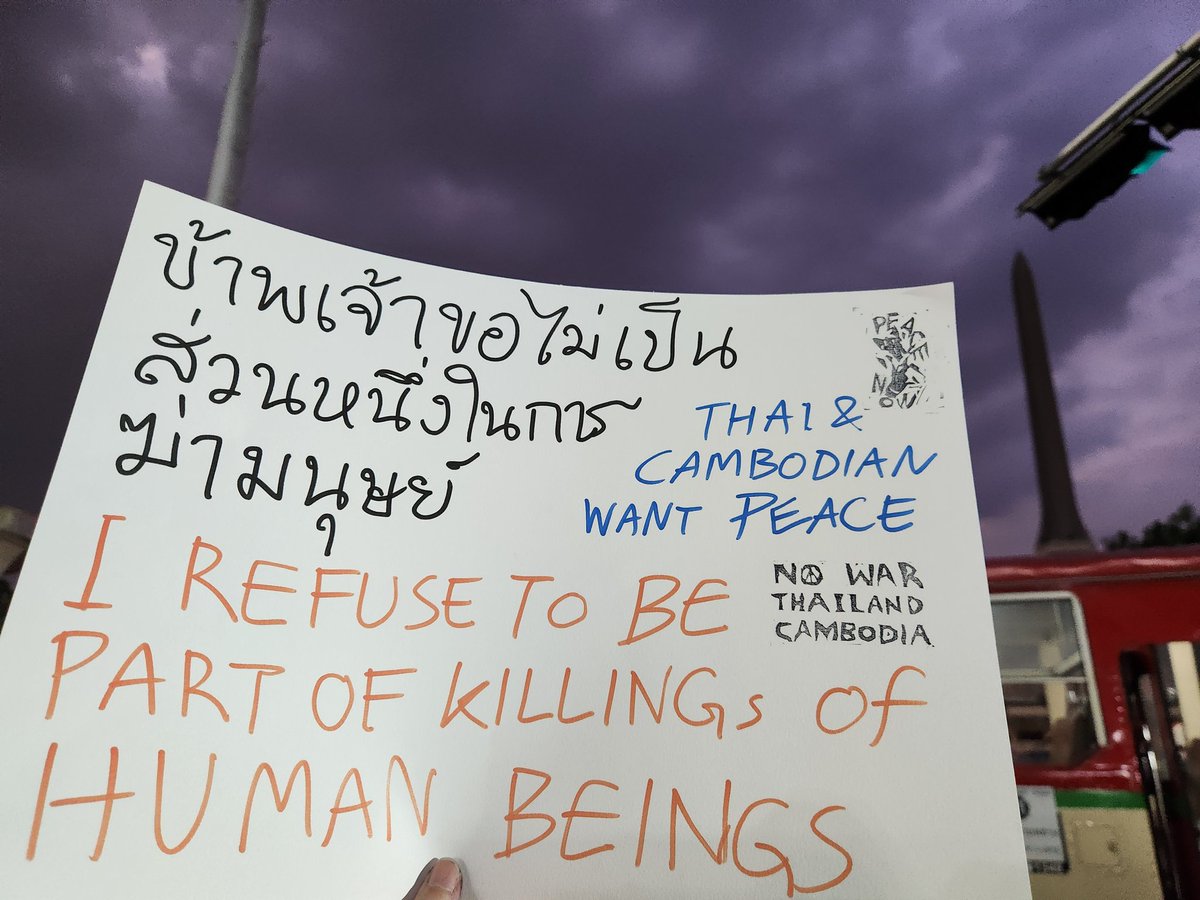 ข้าพเจ้าขอไม่เป็น
ส่วนหนึ่งในการ
ฆ่ามนุษย์
PEACE
NOW
THAI &
CAMBODIAN
WANT PEACE
I REFUSE TO BE
PART OF KILLINGs of
HUMAN BEINGS
NO WAR
THAILAND
CAMBODIA